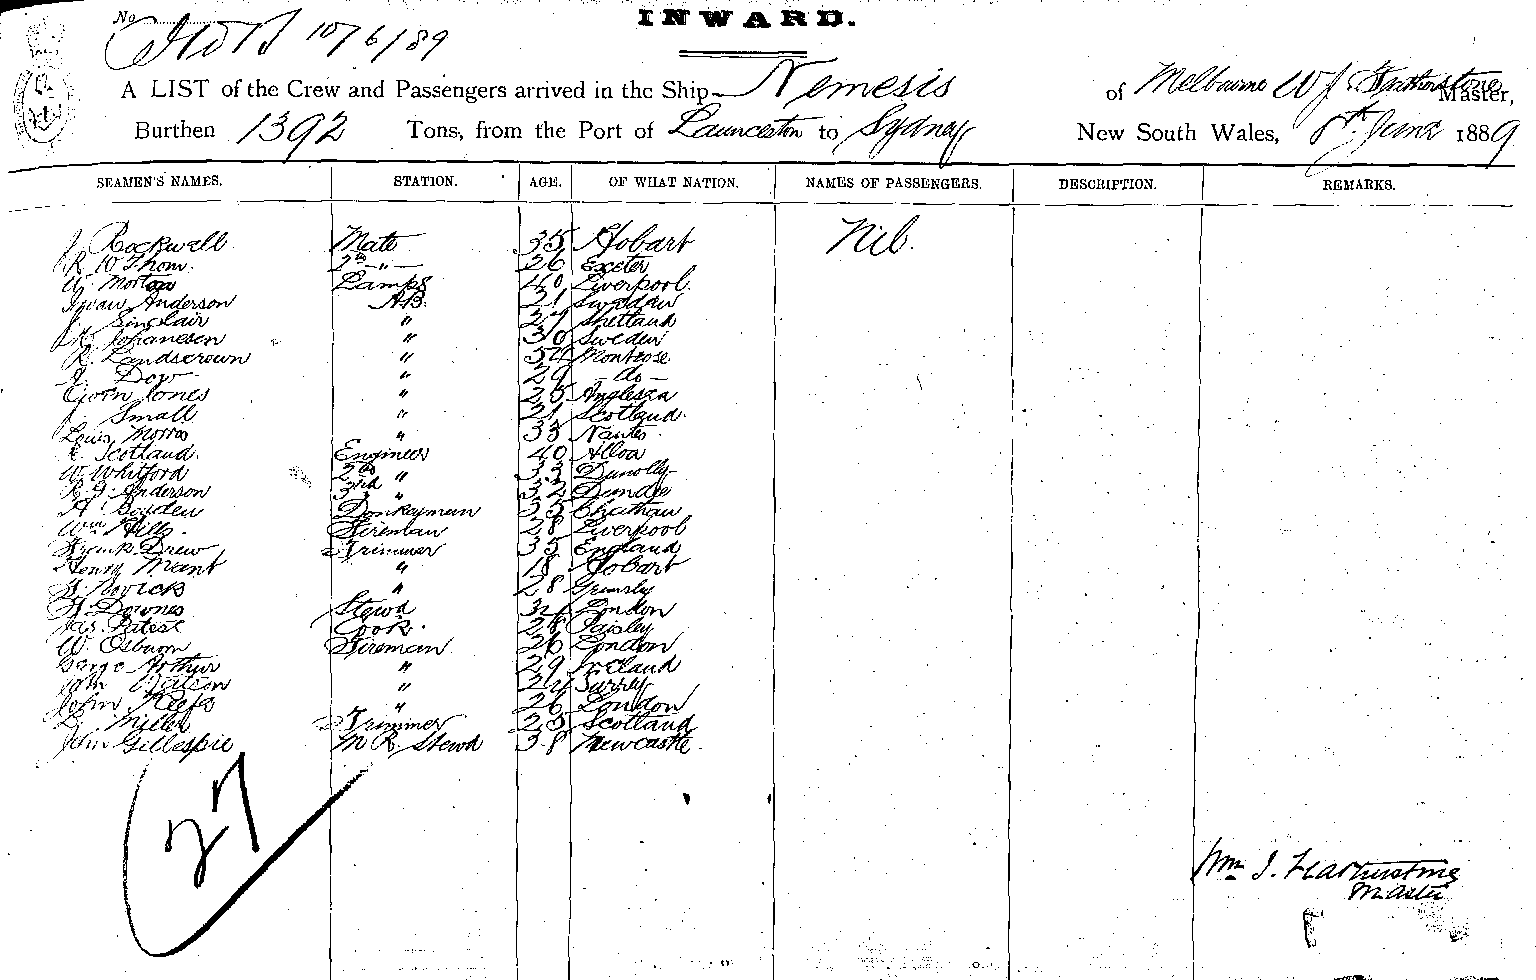 INWARD.
No. 10/6/89
A LIST of the Crew and Passengers arrived in the Ship Nemesis of Melbourne W J Featherstone Master,
Burthen 1392 Tons, from the Port of Launceston to Sydney New South Wales, 8th June 1889
SEAMEN'S NAMES. STATION. AGE. OF WHAT NATION. NAMES OF PASSENGERS. DESCRIPTION. REMARKS.
J Rockwell Mate 35 Hobart Nil.
R W Thom 2nd " 26 Exeter
W Morton Lamps 40 Liverpool
Anderson AB 21 Sweden
J Sinclair " 27 Shetland
Johanesen " 30 Sweden
R Landscrown " 54 Montrose
Dow " 29 do
John Jones " 25 Anglesea
J Small " 21 Scotland
Louis Morro " 33 Nantes
Scotland Engineer 40 Alloa
W Whitford 2nd " 33 Dunolly
R G Anderson 3rd " 32 Dundee
A Boyden Donkeyman 35 Chatham
Wm Hills Fireman 28 Liverpool
Frank Drew Trimmer 35 England
Henry Mant " 18 Hobart
" 28 Grimsby
H Downes Stewd London
Jas Cook 28 Paisley
W Osburn Fireman 26 London
George Arthur " 29 Ireland
" 24 Surrey
John Keefe " 26 London
Miller Trimmer 25 Scotland
John Gillespie M R Stewd 38 Newcastle
27
Wm J. Featherstone
Master